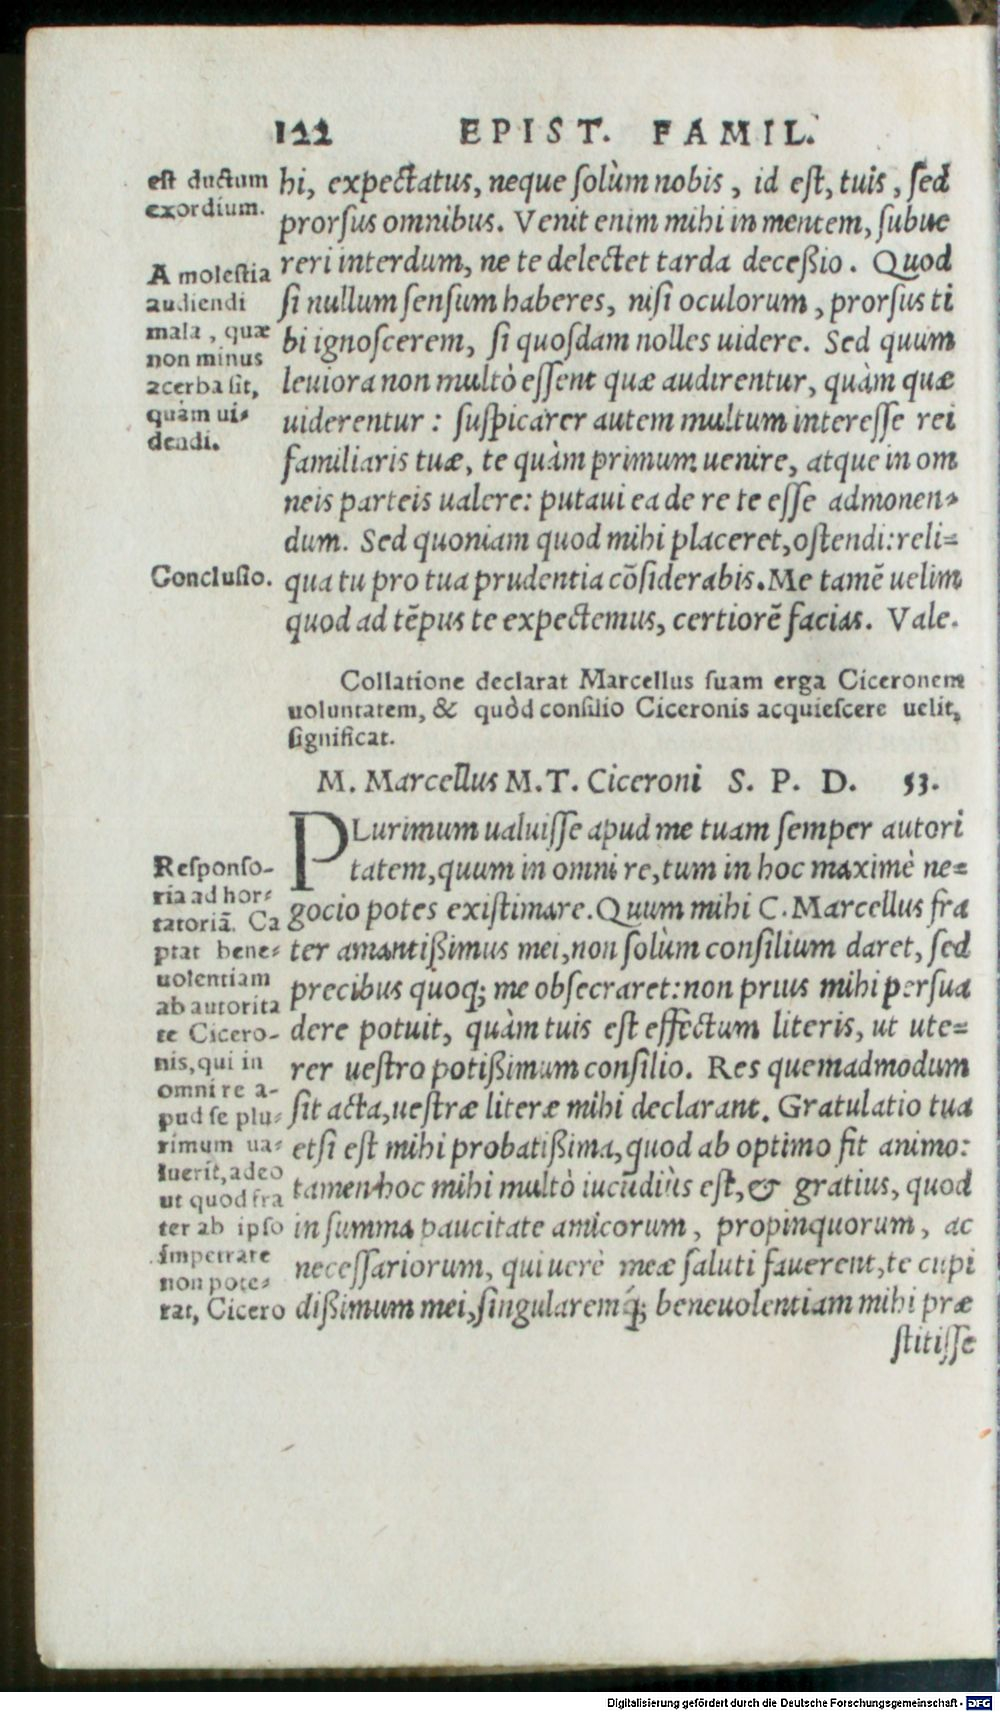 122 EPIST. FAMIL.
est ductum
exordium.
A molestia
audiendi
mala, quæ
non minus
acerba sit,
quàm ui-
dendi.
Conclusio.
hi, expectatus, neque solùm nobis, id est, tuis, sed
prorsus omnibus. Venit enim mihi in mentem, subue
reri interdum, ne te delectet tarda deceßio. Quod
si nullum sensum haberes, nisi oculorum, prorsus ti
bi ignoscerem, si quosdam nolles uidere. Sed quum
leuiora non multò essent quæ audirentur, quàm quæ
uiderentur: suspicarer autem multum interesse rei
familiaris tuæ, te quàm primum uenire, atque in om
neis parteis ualere: putaui ea de re te esse admonen-
dum. Sed quoniam quod mihi placeret, ostendi: reli-
qua tu pro tua prudentia cõsiderabis. Me tamẽ uelim
quod ad tẽpus te expectemus, certiorẽ facias. Vale.
Collatione declarat Marcellus suam erga Ciceronem
uoluntatem, & quòd consilio Ciceronis acquiescere uelit,
significat.
M. Marcellus M. T. Ciceroni S. P. D. 53.
Responso-
ria ad hor-
tatoriã. Ca
ptat bene-
uolentiam
ab autorita
te Cicero-
nis, qui in
omni re a-
pud se plu-
rimum ua-
luerit, adeo
ut quod fra
ter ab ipso
impetrare
non pote-
rat, Cicero
PLurimum ualuisse apud me tuam semper autori
tatem, quum in omni re, tum in hoc maximè ne-
gocio potes existimare. Quum mihi C. Marcellus fra
ter amantißimus mei, non solùm consilium daret, sed
precibus quoq; me obsecraret: non prius mihi persua
dere potuit, quàm tuis est effectum literis, ut ute-
rer uestro potißimum consilio. Res quemadmodum
sit acta, uestræ literæ mihi declarant. Gratulatio tua
etsi est mihi probatißima, quod ab optimo fit animo:
tamen hoc mihi multò iucũdiùs est, & gratius, quod
in summa paucitate amicorum, propinquorum, ac
necessariorum, qui uerè meæ saluti fauerent, te cupi
dißimum mei, singularemq́; beneuolentiam mihi præ
stitisse
Digitalisierung gefördert durch die Deutsche Forschungsgemeinschaft - DFG